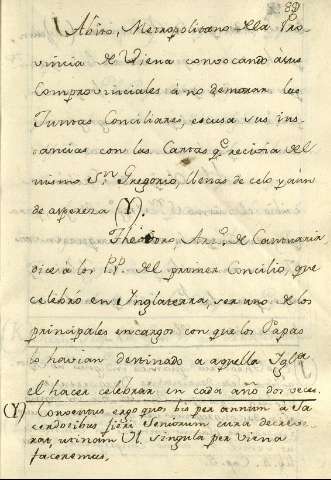 89
Abito, Metropolitano de la Pro-
vincia de Viena convocando à sus
Comprovinciales à no demorar las
Juntas Conciliares, escusa sus ins-
tancias con las Cartas q.e recivia del
mismo S.n Gregorio, llenas de celo y aun
de aspereza (Y).
Theodoro, Arz.o de Cantuaria
dice à los P.P. del primer Concilio, que
celebró en Inglaterra, ser uno de los
principales encargos con que los Papas
lo havian destinado a aquella Igla
el hacer celebrar en cada año dos veces.
(Y) Conventus ergo quos bis per annum à Sa
cerdotibus fieri Seniorum cura decreve-
rat, utinam Vl singula per viena
faceremus.